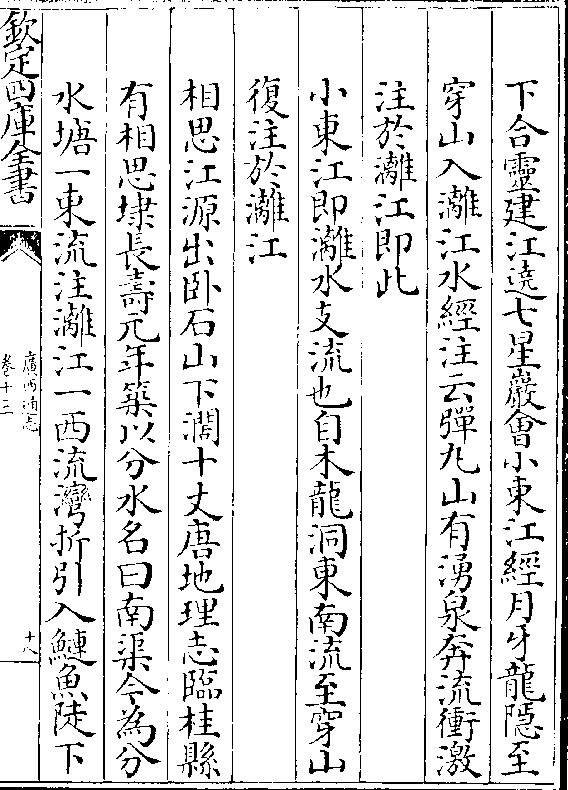 下合靈建江遶七星巖會小東江經月牙龍隱至
穿山入灕江水經注云彈丸山有湧泉奔流衝激
注於灕江即此
小東江即灕水支流也自木龍洞東南流至穿山
復注於灕江
相思江源出卧石山下濶十丈唐地理志臨桂縣
有相思埭長壽元年築以分水名曰南渠今為分
水塘一東流注灕江一西流灣折引入鰱魚陡下
欽定四庫全書
廣西通志
卷十三
十八